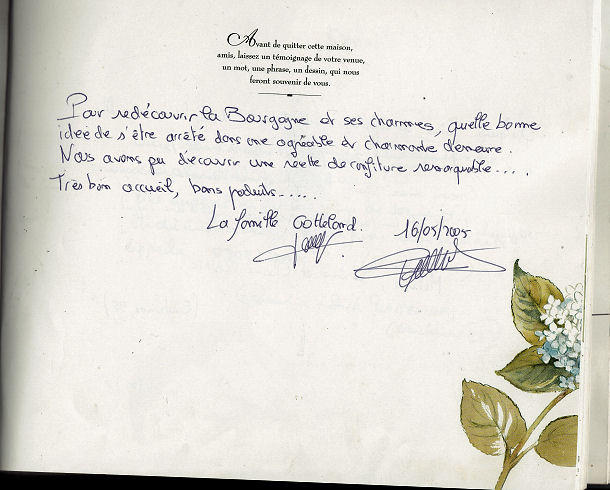 Avant de quitter cette maison,
amis, laissez un témoignage de votre venue,
un mot, une phrase, un dessin, qui nous
feront souvenir de vous.
Pour redécouvrir la Bourgogne et ses charmes, quelle bonne
idée de s'être arrêté dans une agréable et charmante demeure.
Nous avons pu découvrir une recette de confiture remarquable....
Très bon accueil, bons produits.....
La famille Cotteland. 16/05/2005